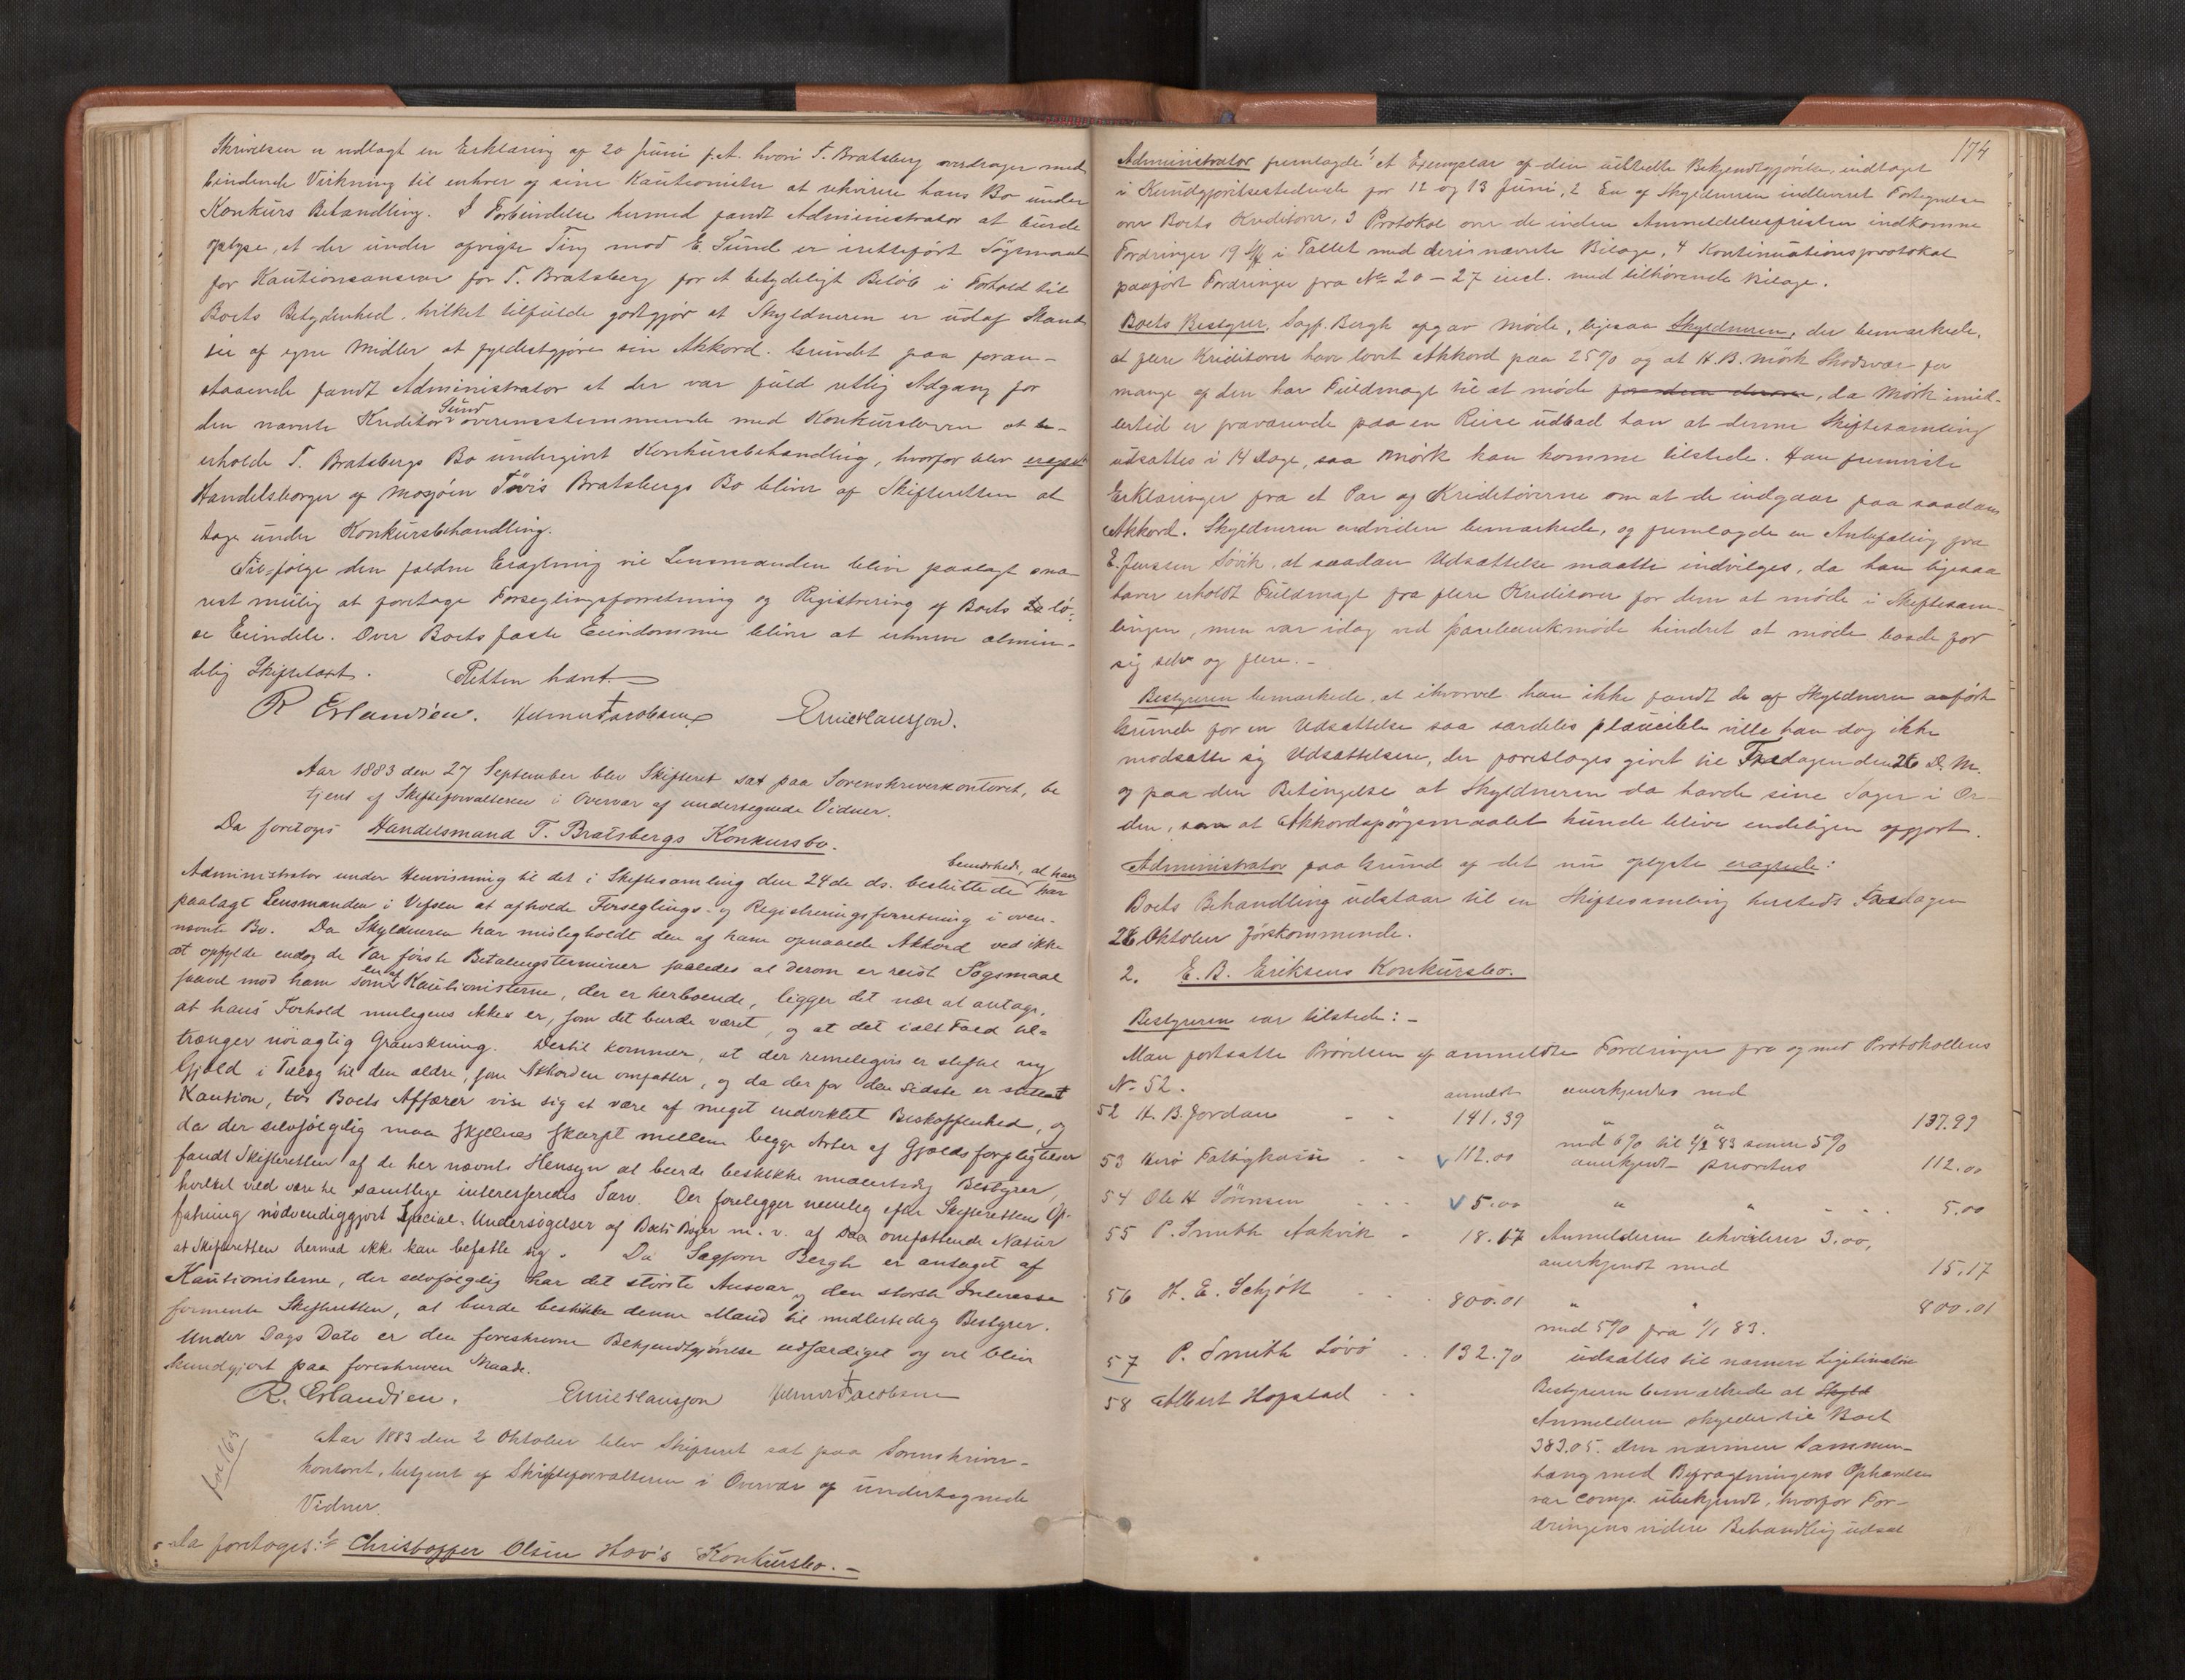 Skrivelsen er vedlagt en Erklæring af 20 Juni f.A. hvori T. Bratsberg overdrager med
bindende Virkning til enhver af sine Kautionister at rekvirere hans Bo under
Konkurs Behandling. I Forbindelse hermed fandt Administrator at burde
oplyse, at der under afvigte Ting mod E Sund er iretteført Søgsmaal
for Kautionsansvar for T. Bratsberg for et betydeligt Beløb i Forhold til
Boets Betydenhed, hvilket tilfulde godtgjør at Skyldneren er udaf Stand
til af egne Midler at fyldestgjøre sin Akkord. Grundet paa foran-
staaende fandt Administrator at der var fuld retlig Adgang for
den nævnte Kreditor Sund overensstemmende med Konkursloven at er-
erholde T. Bratsbergs Bo undergivet Konkursbehandling, hvorfor blev eragtet
Handelsborger af Mosjøen Tövis Bratsbergs Bo bliver af Skifteretten at
tage under Konkursbehandling.
Til følge den faldne Eragtning vil Lensmanden blive paalagt sna-
rest mulig at foretage Forseglingsforretning og Registrering af Boets lø-
se Eiendele. Over Boets faste Eiendomme bliver at udvirke almin-
delig Skiftetaxt. Retten hævet.
R Erlandsen. Helmer Jacobsen Emil Hansson.
Aar 1883 den 27 September blev Skifteret sat paa Sorenskriverkontoret, be
tjent af Skifteforvalteren i Overvær af undertegnede Vidner.
Da foretoges Handelsmand T. Bratsbergs Konkursbo.
bemærkede, at han
Administrator under Henvisning til det i Skiftesamling den 24de ds. besluttede har
paalagt Lensmanden i Vefsen at afholde Forseglings- og Registreringsforretning i oven-
nævnte Bo. Da Skyldneren har misligholdt den af ham opnaaede Akkord ved ikke
at opfylde endog de Par første Betalingsterminer saaledes at derom er reist Søgsmaal
saavel mod ham som en af Kautionisterne, der er herboende, ligger det nær at antage,
at hans Forhold muligens ikke er, som det burde været, og at det ialtfald til-
trænger nøiagtig Granskning. Dertil kommer, at der rimeligvis er stiftet ny
Gjæld i Tillæg til den ældre, som Akkorden omfatter, og da der for den sidste er stillet
Kaution, tør Boets Affærer vise sig at være af meget indviklet Beskaffenhed, og
da der selvfølgelig maa skjelnes skarpt mellem begge Arter af Gjældsforpligtelser
fandt Skifteretten af de her nævnte Hensyn at burde beskikke midlertidig Bestyrer,
hvilket vil være til samtlige interesseredes Tarv. Der foreligger nemlig efter Skifterettens Op-
fatning nødvendiggjort Special-Undersøgelser af Boets Bøger m. v. af saa omfattende Natur
at Skifteretten dermed ikke kan befatte sig. Da Sagfører Bergh er antaget af
Kautionisterne, der selvfølgelig har det største Ansvar og den største Interesse
formente Skifteretten, at burde beskikke denne Mand til midlertidig Bestyrer.
Under Dags Dato er den foreskrevne Bekjendtgjørelse udfærdiget og vil blive
kundgjort paa foreskreven Maade.
R. Erlandsen. Emil Hansson Helmer Jacobsen
fol 163
Aar 1883 den 2 Oktober blev Skifteret sat paa Sorenskriver-
kontoret, betjent af Skifteforvalteren i Overvær af undertegnede
Vidner.
Da foretoges: 1 Christoffer Olsen Hov's Konkursbo. -
174
Administrator fremlagde 1 et Exemplar af den udstedte Bekjendtgjørelse, indtaget
i Kundgjørelsestidende for 12 og 13 Juni, 2 En af Skyldneren indleveret Fortegnelse
over Boets Kreditorer, 3 Protokol over de inden Anmeldelsesfristen indkomne
Fordringer 19 Stk i Tallet med deri nævnte Bilage, 4 Kontinuationsprotokol
paaført Fordringer fra No 20 - 27 incl. med tilhørende Bilage.
Boets Bestyrer, Sagf. Bergh opgav Møde, ligesaa Skyldneren, der bemærkede,
at flere Kreditorer have lovet Akkord paa 25% og at H. B. Mörk Skodsvær for
mange af dem har Fuldmagt til at møde for dem , da Mörk imid-
lertid er fraværende paa en Reise udbad han at denne Skiftesamling
udsættes i 14 Dage, saa Mörk kan komme tilstede. Han fremviste
Erklæringer fra et Par af Kreditorerne om at de indgaar paa saadan
Akkord. Skyldneren endvidere bemærkede, og fremlagde en Anbefaling fra
E. Jenssen Søvik, at saadan Udsættelse maatte indvilges, da han ligesaa
haver erholdt Fuldmagt fra flere Kreditorer for dem at møde i Skiftesam-
lingen, men var idag ved Sparebankmøde hindret at møde baade for
sig selv og flere. -
Bestyreren bemærkede, at ihvorvel han ikke fandt de af Skyldneren anførte
Grunde for en Udsættelse saa særdeles plausible ville han dog ikke
modsætte sig Udsættelsen, der foresloges givet til Fredagen den 26 D. M.
og paa den Betingelse at Skyldneren da havde sine Sager i Or-
den, saa at Akkordspørgsmaalet kunde blive endeligen afgjort.
Administrator paa Grund af det nu oplyste eragtede:
Boets Behandling udstaar til en Skiftesamling hersteds Fredagen
26 Oktober førstkommende.
2. E. B. Eriksens Konkursbo.
Bestyreren var tilstede: -
Man fortsatte Prøvelsen af anmeldte Fordringer fra og med Protokollens
No 52. anmeldt anerkjendes med
52 H. B. Jordan - - 141.39 " " 137.99
med 6% til 1/2 83 senere 5%
53 Herø Fattigkasse - - 112.00 anerkjendt - prioritets 112.00
54 Ole H Sörensen - - - 5.00 " " - - . 5.00
55 P. Smith Aakvik - 18.17 Anmelderen ekviderer 3.00,
anerkjendt med 15.17
56 H. E. Schjøtt - - - 800.01 " " 800.01
med 5% fra 1/1 83.
57 P. Smith Løvö - - 132.70 udsættes til nærmere Ligitimation
58 Albert Hopstad - - Bestyreren bemærkede at Skyld
Anmelderen skylder til Boet
383.05. Den nærmere Sammen-
hæng med Befragtningens Ophævelse
var Comp. ubekjendt, hvorfor For-
dringens videre Behandling udsat